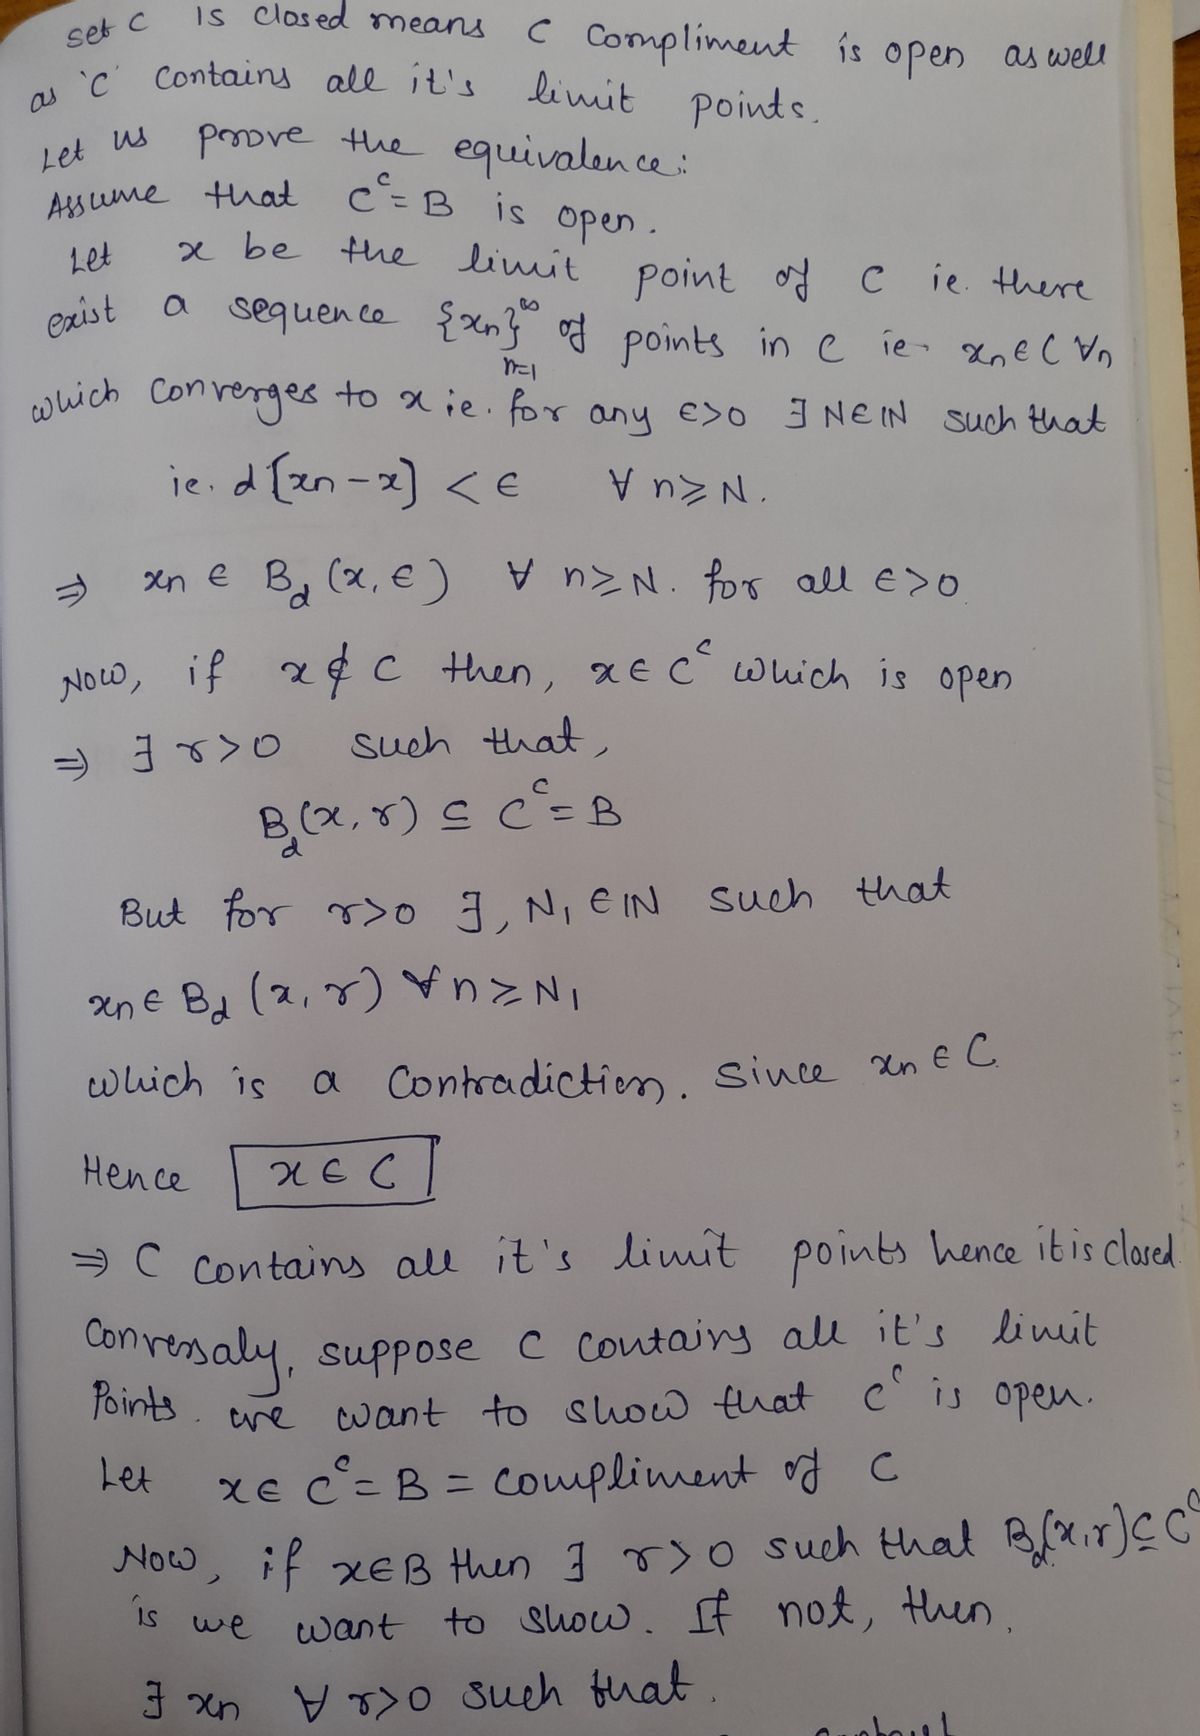 set C is closed means C Compliment is open as well
as 'C' contains all it's limit points.
Let us prove the equivalence:
Assume that C^c = B is open.
Let x be the limit point of C ie. there
exist a sequence {xn}^∞_{n=1} of points in C ie. xn ∈ C ∀n
which converges to x ie. for any ϵ>0 ∃ N∈IN such that
ie. d[xn - x] < ϵ ∀ n ≥ N.
⇒ xn ∈ B_d (x, ϵ) ∀ n ≥ N. for all ϵ>0
Now, if x ∉ C then, x ∈ C^c which is open
⇒ ∃ r>0 such that,
B_d(x, r) ⊆ C^c = B
But for r>0 ∃, N1 ∈ IN such that
xn ∈ B_d (x, r) ∀ n ≥ N1
which is a contradiction. Since xn ∈ C
Hence x ∈ C
⇒ C contains all it's limit points hence it is closed.
Conversaly, suppose C contains all it's limit
Points. we want to show that C^c is open.
Let x ∈ C^c = B = compliment of C
Now, if x∈B then ∃ r>0 such that B_d(x,r) ⊆ C^c
is we want to show. If not, then,
∃ xn ∀ r>0 such that.